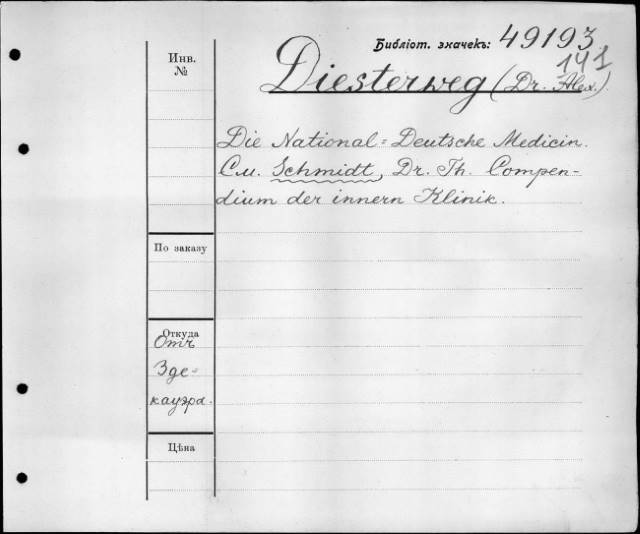 Библіот. значекъ: 49193
141
Инв.
№
Diesterweg (Dr. Alex.).
Die National=Deutsche Medicin.
См. Schmidt, Dr. Th. Compen-
dium der innern Klinik.
По заказу
Откуда
Отъ
Зде-
кауэра.
Цѣна